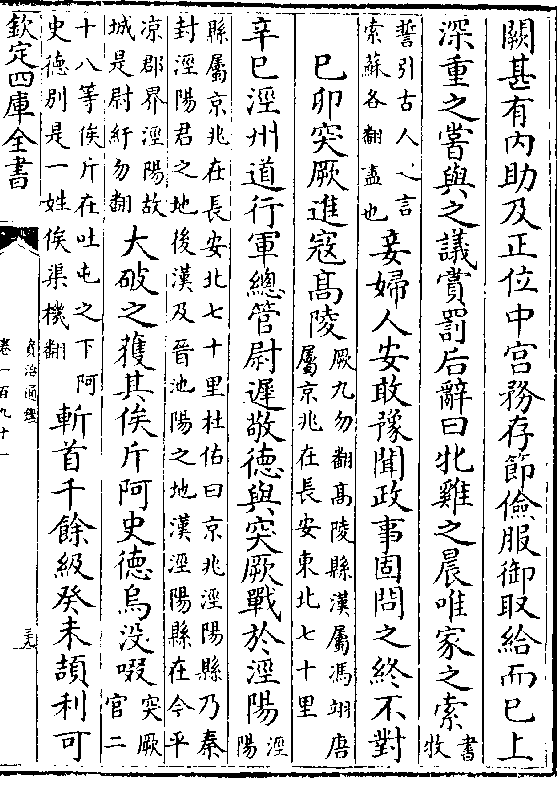 闕甚有內助及正位中宮務存節儉服御取給而已上
深重之嘗與之議賞罰后辭曰牝雞之晨唯家之索
書
牧
誓引古人之言
索蘇各翻盡也
妾婦人安敢豫聞政事固問之終不對
己卯突厥進寇高陵
厥九勿翻高陵縣漢屬馮翊唐
屬京兆在長安東北七十里
辛巳涇州道行軍總管尉遲敬德與突厥戰於涇陽
涇
陽
縣屬京兆在長安北七十里杜佑曰京兆涇陽縣乃秦
封涇陽君之地後漢及晉池陽之地漢涇陽縣在今平
涼郡界涇陽故
城是尉紆勿翻
大破之獲其俟斤阿史德烏没啜
突厥
官二
十八等俟斤在吐屯之下阿
史德别是一姓俟渠機翻
斬首千餘級癸未頡利可
欽定四庫全書
資治通鑑
卷一百九十一